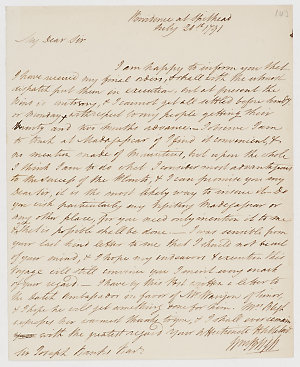 Providence at Spithead
July 20th 1791
My Dear Sir
I am happy to inform you that
I have received my final orders, & shall with the utmost
dispatch put them in execution, but at present the
Wind is and I cannot get all settled before
or Monday, with respect to my people getting their
bounty and two months advance — I observe I am
to touch at Madagascar if I find it convenient, &
no mention made of Mauritius, but upon the whole
I think I am to do what I consider most advantageous
to the success of the Plants, & I can promise you my
Dear Sir, it is the most likely way to ensure it — Do
you wish particularly my visiting Madagascar or
any other place, for you need only mention it to me
& what is possible shall be done — I was sensible from
your last kind letter to me that I should not be out
of your mind, & I hope my endeavors & execution this
Voyage will still convince you I merit every mark
of your regard — I have by this Post written a letter to
the dutch Ambassador in favor of Mr of Timor,
& I hope he will get something done for him. Mrs Bligh
expresses her warmest thanks to you, & I shall ever remain
with the greatest regard Your Affectionate Hble Sert
Sir Joseph Banks Bart
Wm Bligh